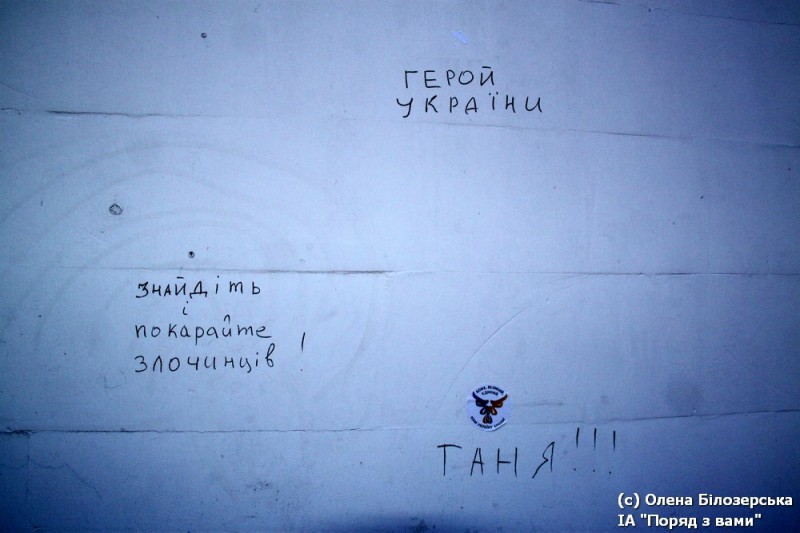 ГЕРОЙ
УКРАЇНИ
ЗНАЙДІТЬ
і
покарайте
злочинців !
ТАНЯ!!!
(c) Олена Білозерська
ІА "Поряд з вами"